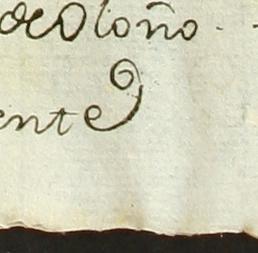 de Oloño
ente